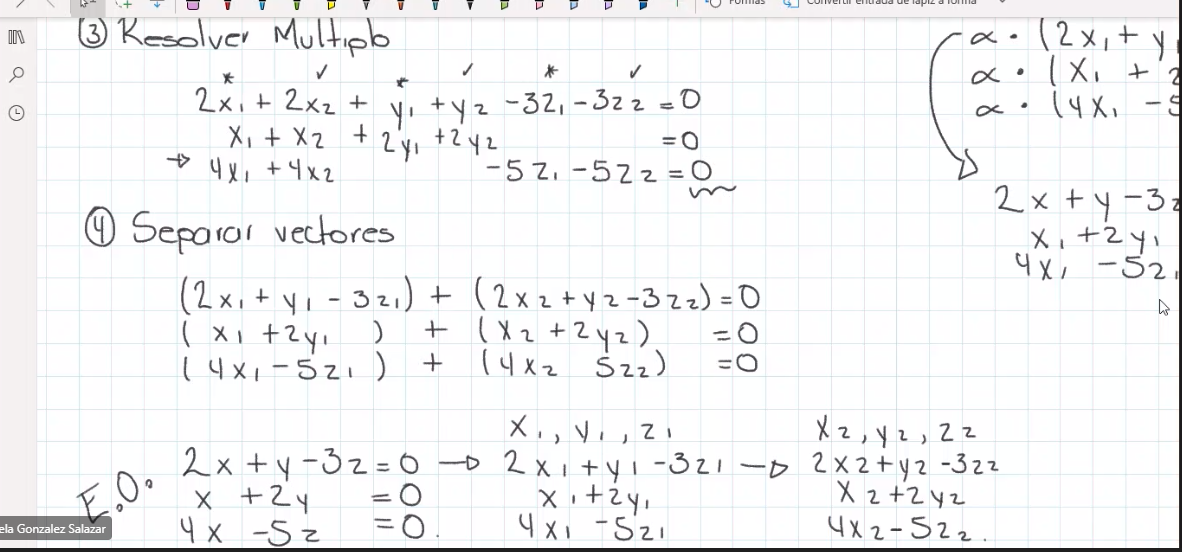 Formas Convertir entrada de lápiz a forma
③ Resolver Multiplo
* ✓ * ✓ * ✓
2x₁ + 2x₂ + y₁ + y₂ - 3z₁ - 3z₂ = 0
x₁ + x₂ + 2y₁ + 2y₂ = 0
→ 4x₁ + 4x₂ - 5z₁ - 5z₂ = 0
④ Separar vectores
(2x₁ + y₁ - 3z₁) + (2x₂ + y₂ - 3z₂) = 0
( x₁ + 2y₁ ) + (x₂ + 2y₂) = 0
( 4x₁ - 5z₁ ) + (4x₂ 5z₂) = 0
x₁, y₁, z₁ x₂, y₂, z₂
E.O. 2x + y - 3z = 0 → 2x₁ + y₁ - 3z₁ → 2x₂ + y₂ - 3z₂
x + 2y = 0 x₁ + 2y₁ x₂ + 2y₂
4x - 5z = 0. 4x₁ - 5z₁ 4x₂ - 5z₂.
α · (2x₁ + y
α · (x₁ + 2
α · (4x₁ - 5
2x + y - 3z
x₁ + 2y₁
4x₁ - 5z₁
ela Gonzalez Salazar